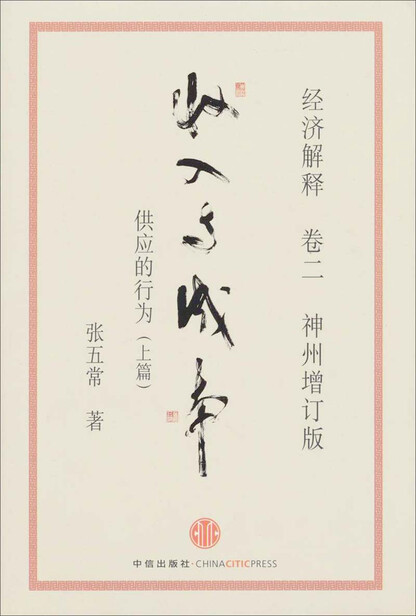 经济解释 卷二 神州增订版
收入与成本
供应的行为(上篇)
张五常 著
中信出版社·CHINACITICPRESS